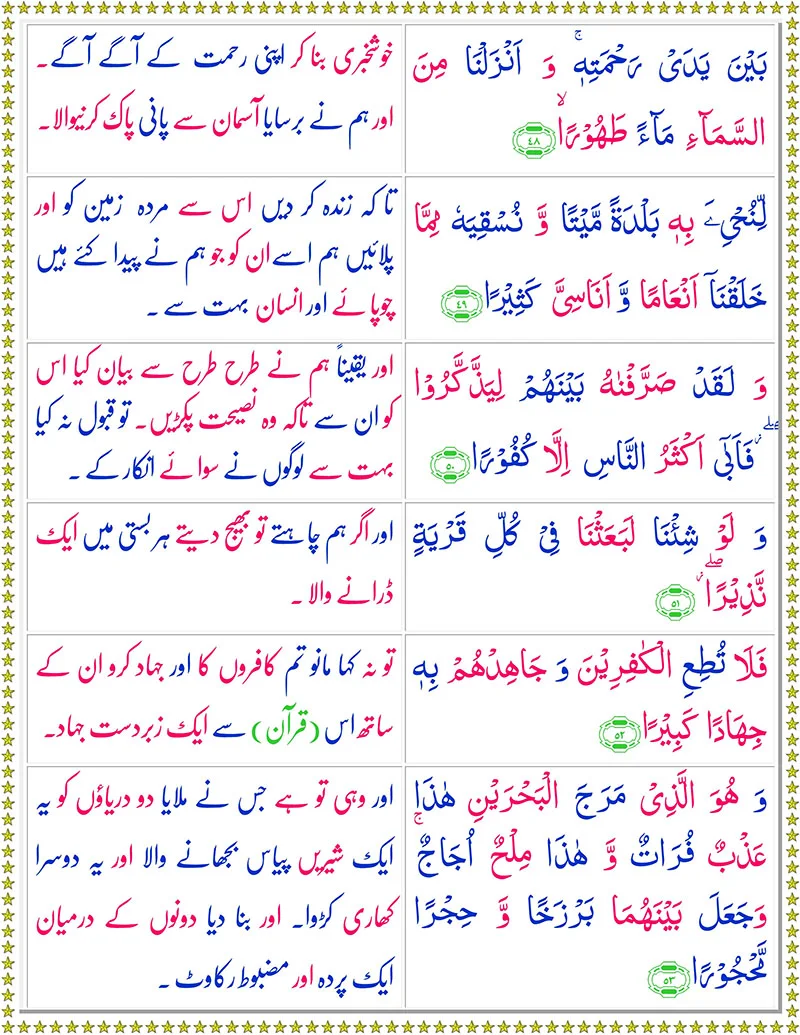 بَيْنَ يَدَىْ رَحْمَتِهٖ ۚ وَ اَنْزَلْنَا مِنَ
السَّمَآءِ مَآءً طَهُوْرًا ۙ ﴿٤٨﴾
خوشخبری بنا کر اپنی رحمت کے آگے آگے۔
اور ہم نے برسایا آسمان سے پانی پاک کرنیوالا۔
لِّنُحْیِۦَ بِهٖ بَلْدَةً مَّيْتًا وَّ نُسْقِيَهٗ مِمَّا
خَلَقْنَآ اَنْعَامًا وَّ اَنَاسِىَّ كَثِيْرًا ﴿٤٩﴾
تا کہ زندہ کر دیں اس سے مردہ زمین کو اور
پلائیں ہم اسے ان کو جو ہم نے پیدا کئے ہیں
چوپائے اور انسان بہت سے ۔
وَ لَقَدْ صَرَّفْنٰهُ بَيْنَهُمْ لِيَذَّكَّرُوْا ۖ
فَاَبٰٓى اَكْثَرُ النَّاسِ اِلَّا كُفُوْرًا ﴿٥٠﴾
اور یقیناً ہم نے طرح طرح سے بیان کیا اس
کو ان سے تاکہ وہ نصیحت پکڑیں۔ تو قبول نہ کیا
بہت سے لوگوں نے سوائے انکار کے ۔
وَ لَوْ شِئْنَا لَبَعَثْنَا فِىْ كُلِّ قَرْيَةٍ
نَّذِيْرًا ۖ ﴿٥١﴾
اور اگر ہم چاہتے تو بھیج دیتے ہر بستی میں ایک
ڈرانے والا ۔
فَلَا تُطِعِ الْكٰفِرِيْنَ وَ جَاهِدْهُمْ بِهٖ
جِهَادًا كَبِيْرًا ﴿٥٢﴾
تو نہ کہا مانو تم کافروں کا اور جہاد کرو ان کے
ساتھ اس (قرآن) سے ایک زبردست جہاد۔
وَ هُوَ الَّذِىْ مَرَجَ الْبَحْرَيْنِ هٰذَا
عَذْبٌ فُرَاتٌ وَّ هٰذَا مِلْحٌ اُجَاجٌ ۚ
وَجَعَلَ بَيْنَهُمَا بَرْزَخًا وَّ حِجْرًا
مَّحْجُوْرًا ﴿٥٣﴾
اور وہی تو ہے جس نے ملایا دو دریاؤں کو یہ
ایک شیریں پیاس بجھانے والا اور یہ دوسرا
کھاری کڑوا۔ اور بنا دیا دونوں کے درمیان
ایک پردہ اور مضبوط رکاوٹ ۔